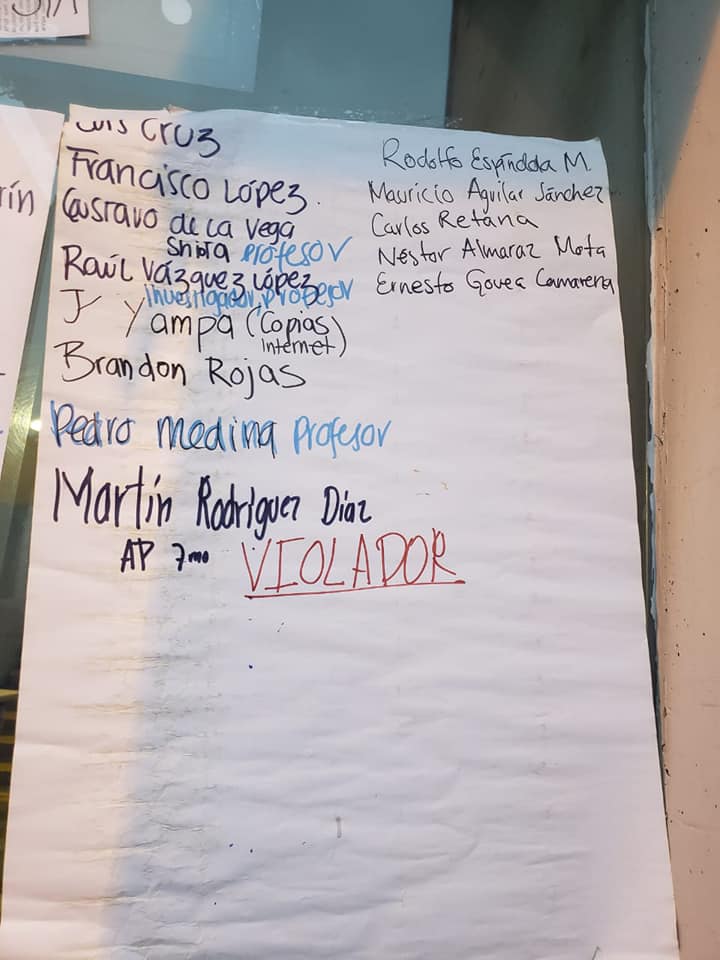 Luis Cruz
Francisco López.
Gustavo de La Vega
Shiota profesor
Raúl Vázquez López
Investigador, profesor
J Yampa (Copias
Internet)
Brandon Rojas
Pedro Medina profesor
Martín Rodríguez Díaz
AP 7mo VIOLADOR
Rodolfo Espíndola M.
Mauricio Aguilar Sánchez
Carlos Retana
Néstor Almaraz Mota
Ernesto Govea Camarena
rín